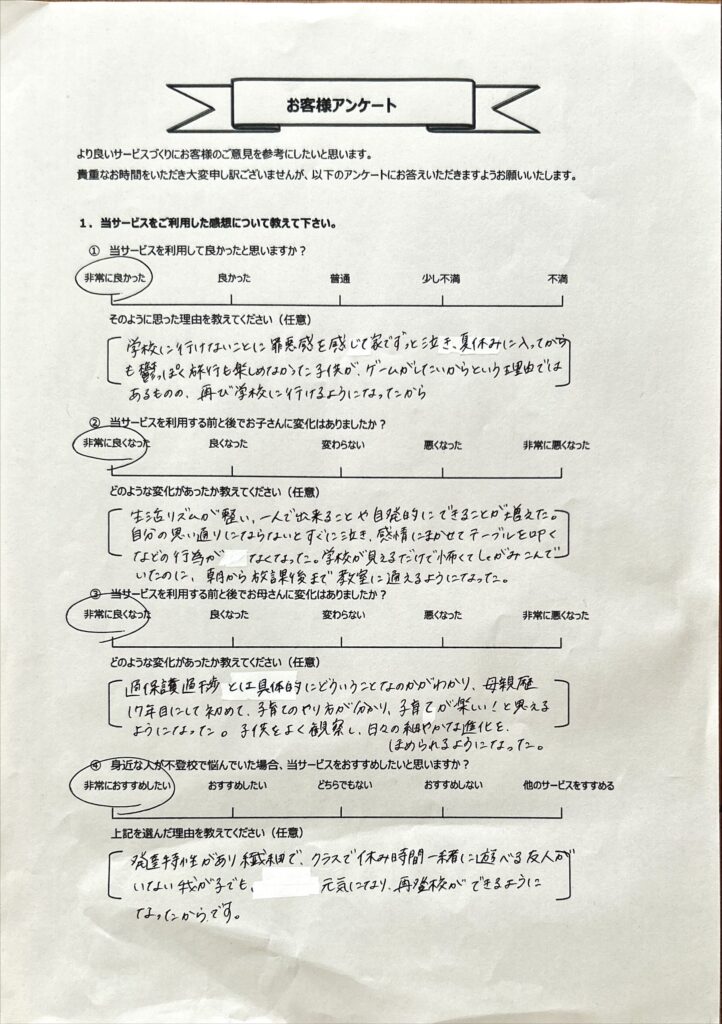 お客様アンケート
より良いサービスづくりにお客様のご意見を参考にしたいと思います。
貴重なお時間をいただき大変申し訳ございませんが、以下のアンケートにお答えいただきますようお願いいたします。
1．当サービスをご利用した感想について教えて下さい。
① 当サービスを利用して良かったと思いますか？
非常に良かった 良かった 普通 少し不満 不満
そのように思った理由を教えてください（任意）
学校に行けないことに罪悪感を感じて家でずっと泣き、夏休みに入ってから
も鬱っぽく旅行も楽しめなかった子供が、ゲームがしたいからという理由では
あるものの、再び学校に行けるようになったから
② 当サービスを利用する前と後でお子さんに変化はありましたか？
非常に良くなった 良くなった 変わらない 悪くなった 非常に悪くなった
どのような変化があったか教えてください（任意）
生活リズムが整い、一人で出来ることや自発的にできることが増えた。
自分の思い通りにならないとすぐに泣き、感情にまかせてテーブルを叩く
などの行為が なくなった。学校が見えるだけで怖くてしゃがみこんで
いたのに、朝から放課後まで教室に通えるようになった。
③ 当サービスを利用する前と後でお母さんに変化はありましたか？
非常に良くなった 良くなった 変わらない 悪くなった 非常に悪くなった
どのような変化があったか教えてください（任意）
過保護過干渉とは具体的にどういうことなのかがわかり、母親歴
17年目にして初めて、子育てのやり方が分かり、子育てが楽しい！と思える
ようになった。子供をよく観察し、日々の細やかな進化を
ほめられるようになった。
④ 身近な人が不登校で悩んでいた場合、当サービスをおすすめしたいと思いますか？
非常におすすめしたい おすすめしたい どちらでもない おすすめしない 他のサービスをすすめる
上記を選んだ理由を教えてください（任意）
発達特性があり繊細で、クラスで休み時間一緒に遊べる友人が
いない我が子でも、 元気になり、再登校ができるように
なったからです。